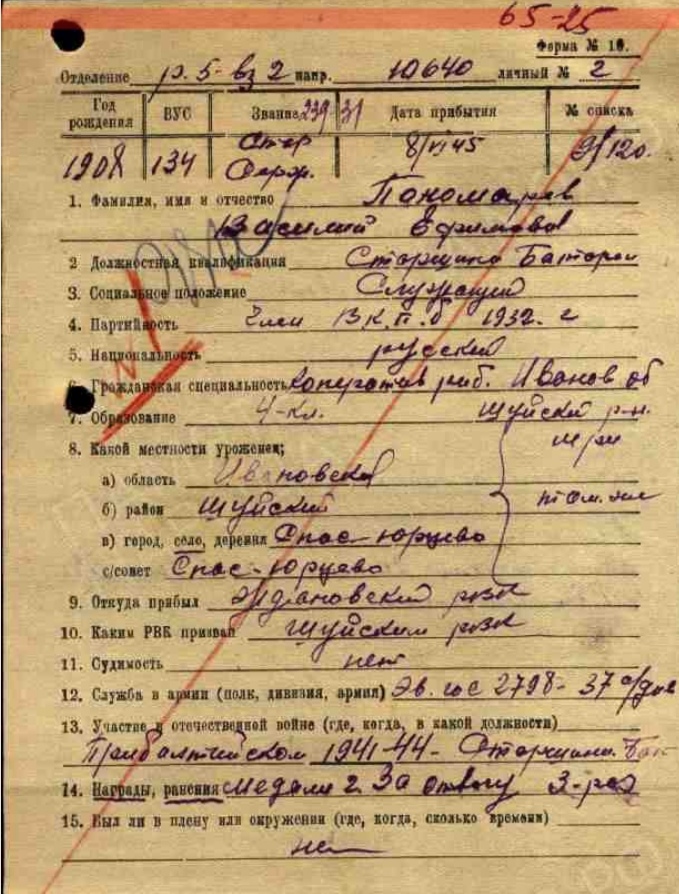 65-25
Форма № 10.
Отделение р. 5- вз 2 напр. 10640 личный № 2
Год рождения ВУС Звание 239 31 Дата прибытия № списка
1908 134 Стар Серж. 8/VI 45 9/120.
1. Фамилия, имя и отчество Пономарев
Василий Ефимович
2 Должностная квалификация Старшина Батареи
3. Социальное положение Служащий
4. Партийность Член В К. П. б 1932. г
5. Национальность русский
6. Гражданская специальность Кооператив раб. Иванов об
7. Образование 4-кл. Шуйский р-н.
8. Какой местности уроженец;
а) область Ивановской
б) район Шуйский
в) город, село, деревня Спас-Юрцево
с/совет Спас-Юрцево
9. Откуда прибыл Ждановский рвк
10. Каким РВК призван Шуйским рвк
11. Судимость нет
12. Служба в армии (полк, дивизия, армия) Эв. гос 2798- 37
13. Участие в отечественной войне (где, когда, в какой должности)
Прибалтийском 1941-44- Старшина Бат
14. Награды, ранения медали 2 За отвагу 3-раз
15. Был ли в плену или окружении (где, когда, сколько времени)
нет